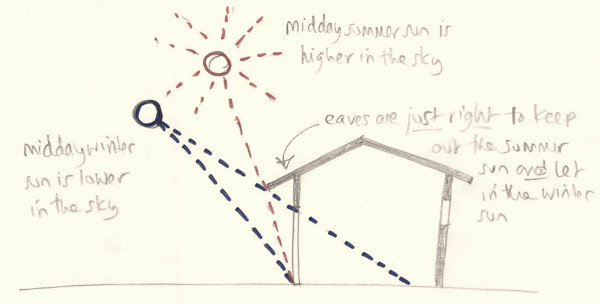 midday summer sun is
higher in the sky
eaves are just right to keep
out the summer
sun and let
in the winter
sun
midday winter
sun is lower
in the sky